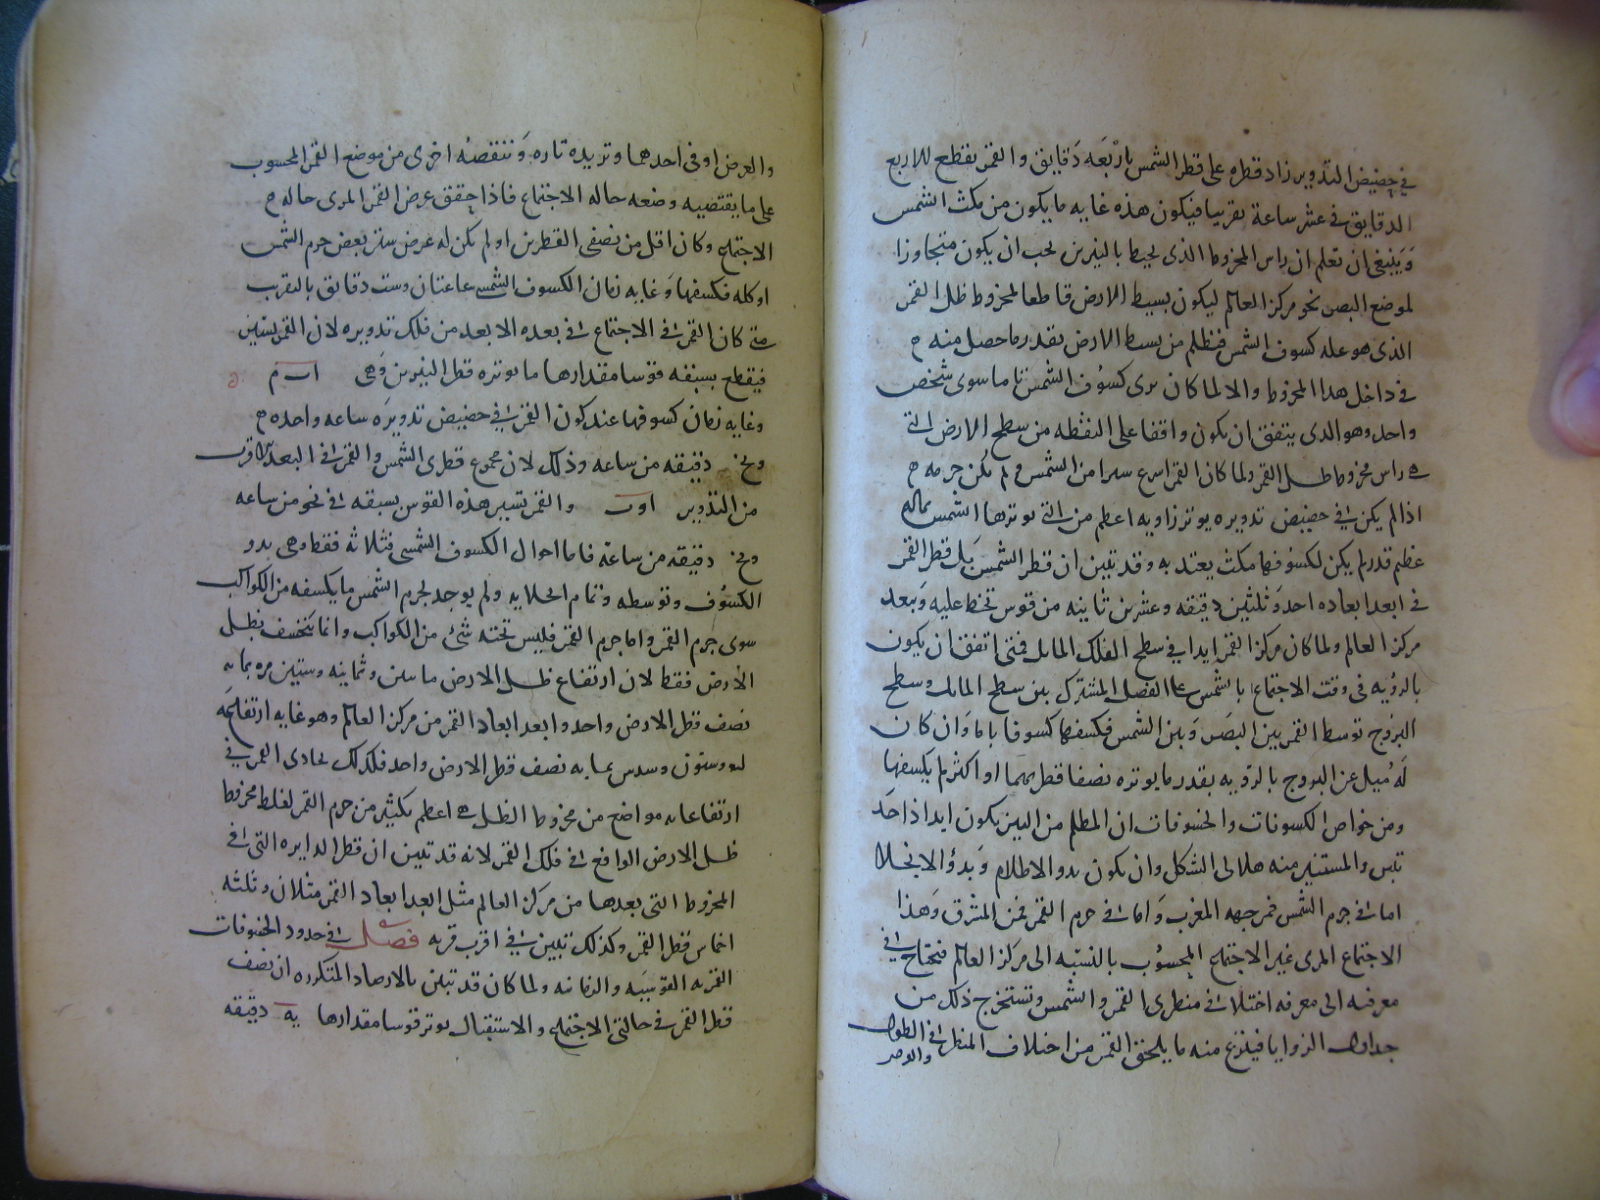 في حضيض التدوير زاد قطره على قطر الشمس باربعه دقايق والقمر يقطع للاربع
الدقايق في عشر ساعة تقريبا فيكون هذه غايه ما يكون من مكث الشمس
وينبغي ان تعلم ان راس المخروط الذي يحيط بالنيرين يجب ان يكون متجاوزا
لموضع البصر نحو مركز العالم ليكون بسيط الارض قاطعا لمخروط ظل القمر
الذي هو عله كسوف الشمس فيظلم من بسيط الارض بقدر ما حصل منه
في داخل هذا المخروط والا لما كان يرى كسوف الشمس تاما سوى شخص
واحد وهو الذي يتفق ان يكون واقفا على النقطه من سطح الارض التي
هي راس مخروط ظل القمر ولما كان القمر اسرع سيرا من الشمس ولم يكن جرمه
اذا لم يكن في حضيض تدويره يوتر زاويه اعظم من التي يوترها الشمس بماله
عظم قدر لم يكن لكسوفها مكث يعتد به وقد تبين ان قطر الشمس بل قطر القمر
في ابعد ابعاده احد وثلثين دقيقه وعشرين ثانيه من قوس تخط عليه وببعد
مركز العالم ولما كان مركز القمر ابدا في سطح الفلك المايل فمتى اتفق ان يكون
بالرؤيه في وقت الاجتماع بالشمس على الفصل المشترك بين سطح المايل وسطح
البروج توسط القمر بين البصر وبين الشمس فكسفها كسوفا تاما وان كان
له ميل عن البروج بالرؤيه بقدر ما يوتره نصفا قطريهما او اكثر لم يكسفها
ومن خواص الكسوفات والخسوفات ان المظلم من النيرين يكون ابدا ذا حد
والمستنير منه هلالي الشكل وان يكون بدو الاظلام وبدؤ الانجلا
اما في جرم الشمس فمن جهه المغرب واما في جرم القمر فمن المشرق وهذا
الاجتماع المرى غير الاجتماع المحسوب بالنسبه الى مركز العالم فنحتاج في
معرفته الى معرفه اختلاف منظري القمر والشمس وتستخرج ذلك من
جداول الزوايا فينزع منه ما يلحق القمر من اختلاف المنظر في الطول
والعرض
والعرض او في احدهما وتزيده تاره وتنقصه اخرى من موضع القمر المحسوب
على ما يقتضيه وضعه حاله الاجتماع فاذا حقق عرض القمر المرى حاله
الاجتماع وكان اقل من نصفي القطرين او لم يكن له عرض ستر بعض جرم الشمس
او كله فكسفها وغايه زمان الكسوف الشمسي ساعتان وست دقايق بالتقريب
متى كان القمر في الاجتماع في بعده الابعد من فلك تدويره لان القمر يسير
فيقطع بسبقه قوسا مقدارها ما يوتره قطر النيرين وهي ا ب م
وغايه زمان كسوفها عند كون القمر في حضيض تدويره ساعه واحده
دقيقه من ساعه وذلك لان مجموع قطري الشمس والقمر في البعد الاقرب
من التدوير والقمر تسير هذه القوس بسبقه في نحو من ساعه
دقيقه من ساعة فاما احوال الكسوف الشمسي فثلاثه فقط وهي بدو
الكسوف وتوسطه وتمام انجلايه ولم يوجد لجرم الشمس ما يكسفه من الكواكب
سوى جرم القمر واما جرم القمر فليس تحته شئ من الكواكب وانما ينخسف بظل
الأرض فقط لان ارتفاع ظل الارض ماىتىن وثمانيه وستين مره بما به
نصف قطر الارض واحد وابعد ابعاد القمر من مركز العالم وهو غايه ارتفاعه
وستون وسدس بما به نصف قطر الارض واحد فلذلك يحاذي القمر في
ارتفاعاته مواضع من مخروط الظل هي اعظم بكثير من جرم القمر لغلظ مخروط
ظل الارض الواقع في فلك القمر لانه قد تبين ان قطر الدايره التي في
المخروط التي بعدها من مركز العالم مثل ابعد ابعاد القمر مثلان وثلثه
اخماس قطر القمر وكذلك تبين في اقرب قربه فصل في حدود الخسوفات
القمريه القوسيه والزمانيه ولما كان قد تبين بالارصاد المتكرره ان نصف
قطر القمر في حالتي الاجتماع والاستقبال يوتر قوسا مقدارها يه دقيقه